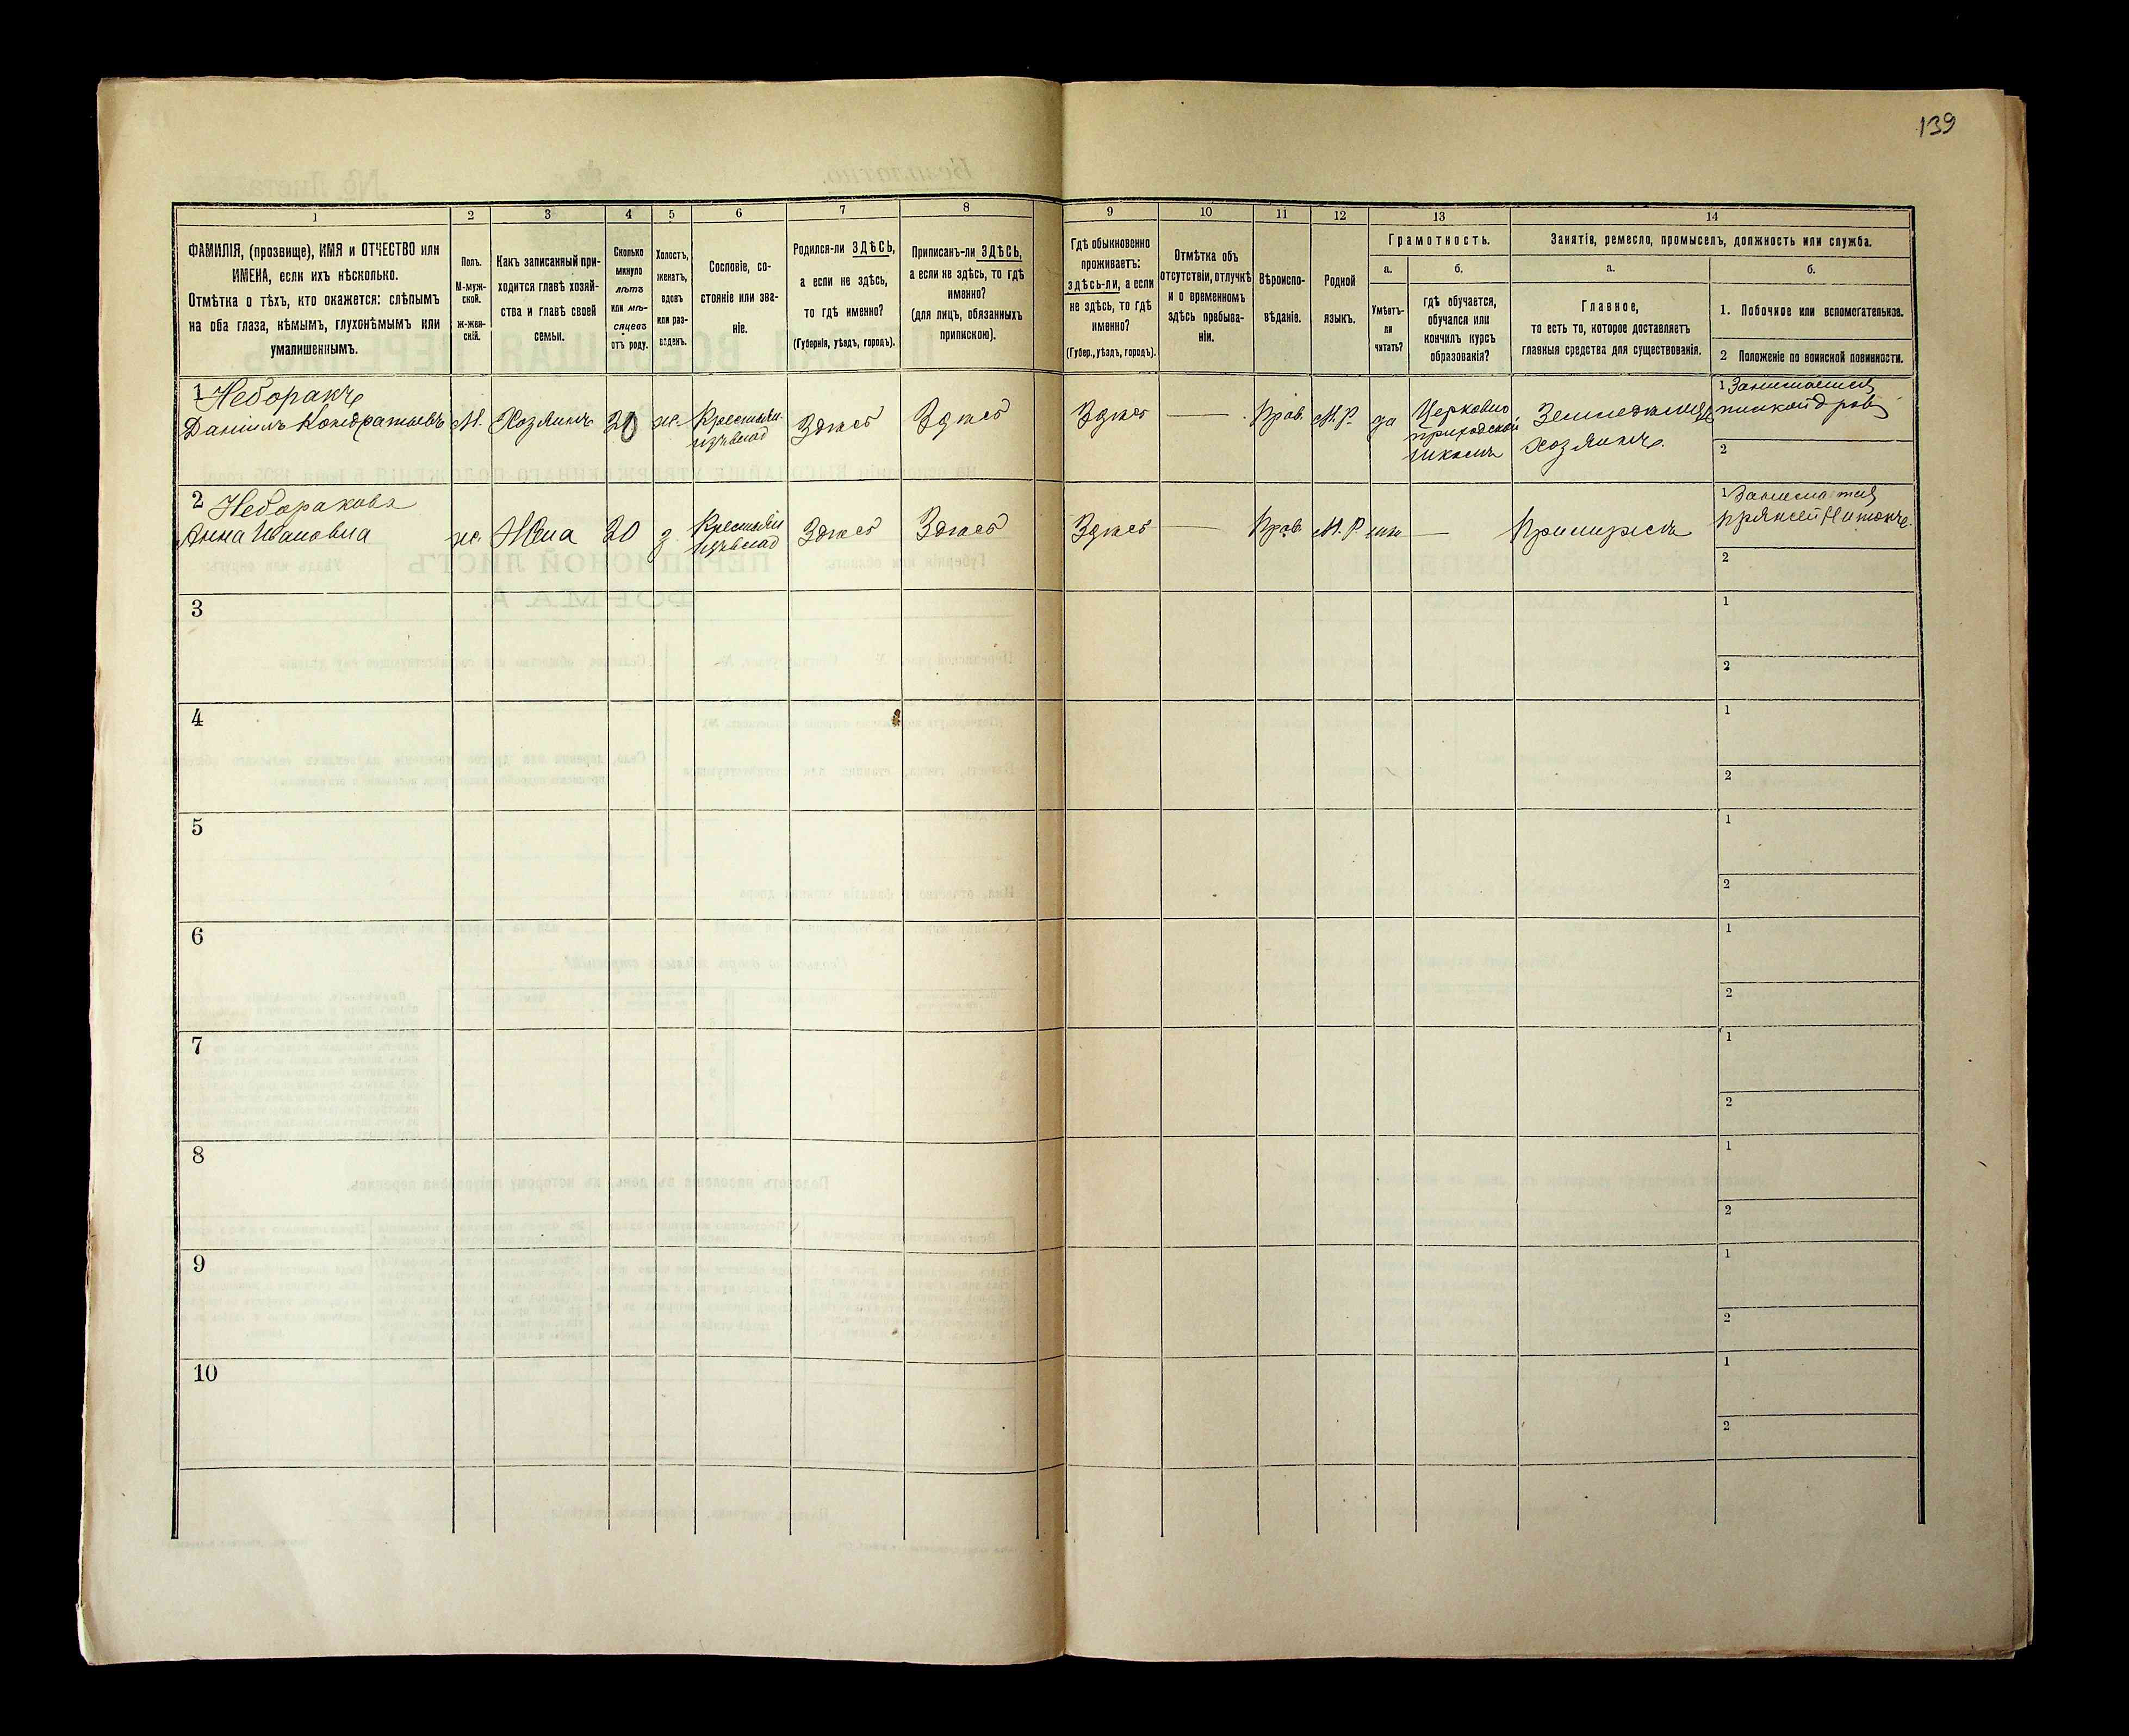 139
1 2 3 4 5 6 7 8 9 10 11 12 13 14
ФАМИЛІЯ, (прозвище), ИМЯ и ОТЧЕСТВО или
ИМЕНА, если ихъ нѣсколько.
Отмѣтка о тѣхъ, кто окажется: слѣпымъ
на оба глаза, нѣмымъ, глухонѣмымъ или
умалишеннымъ.
Полъ.
М-муж-
ской.
ж-жен-
скій.
Какъ записанный при-
ходится главѣ хозяй-
ства и главѣ своей
семьи.
Сколько
минуло
лѣтъ
или мѣ-
сяцевъ
отъ роду.
Холостъ,
женатъ,
вдовъ
или раз-
веденъ.
Сословіе, со-
стояніе или зва-
ніе.
Родился-ли ЗДѢСЬ,
а если не здѣсь,
то гдѣ именно?
(Губернія, уѣздъ, городъ).
Приписанъ-ли ЗДѢСЬ,
а если не здѣсь, то гдѣ
именно?
(для лицъ, обязанныхъ
припискою).
Гдѣ обыкновенно
проживаетъ:
здѣсь-ли, а если
не здѣсь, то гдѣ
именно?
(Губер., уѣздъ, городъ).
Отмѣтка объ
отсутствіи, отлучкѣ
и о временномъ
здѣсь пребыва-
ніи.
Вѣроиспо-
вѣданіе.
Родной
языкъ.
Грамотность.
а.
Умѣетъ-
ли
читать?
б.
гдѣ обучается,
обучался или
кончилъ курсъ
образованія?
Занятія, ремесло, промыселъ, должность или служба.
а.
Главное,
то есть то, которое доставляетъ
главныя средства для существованія.
б.
1. Побочное или вспомогательное.
2 Положеніе по воинской повинности.
1 Неборакъ
Даніилъ Кондратьевъ М. Хозяинъ 20 ж. Крестьян Здѣсь Здѣсь Здѣсь — Прав. М.Р. да Церковно
приходской
школѣ
Земледѣлецъ
хозяинъ.
1 Занимается
пилкой дровъ
2
2 Неборакова
Анна Ивановна ж. Жена 20 з. Крестьян Здѣсь Здѣсь Здѣсь — Прав. М.Р нѣтъ — При мужѣ
1 Занимается
пряжей нитокъ.
2
3
1
2
4
1
2
5
1
2
6
1
2
7
1
2
8
1
2
9
1
2
10
1
2